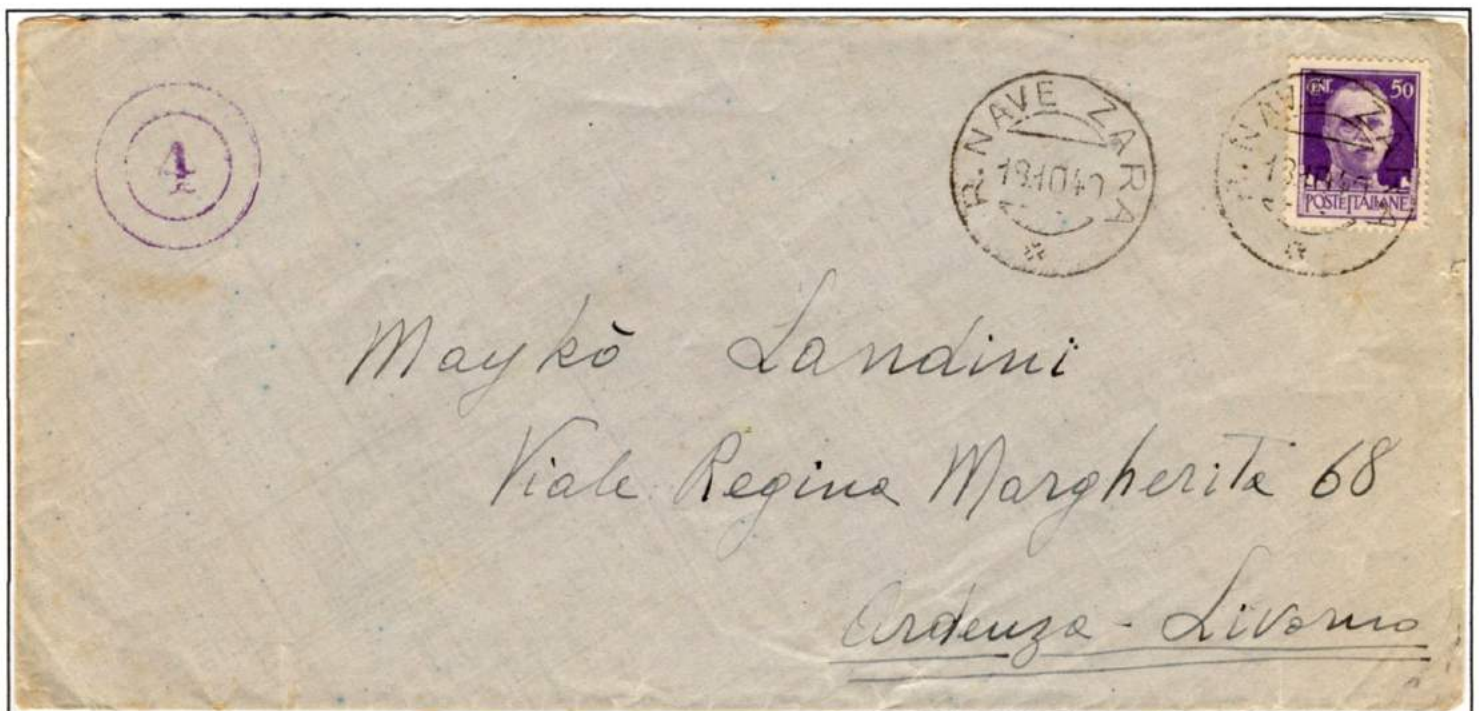 4
R. NAVE ZARA
18.10.40
CENT. 50
POSTE ITALIANE
Maykò Landini
Viale Regina Margherita 68
Ardenza - Livorno